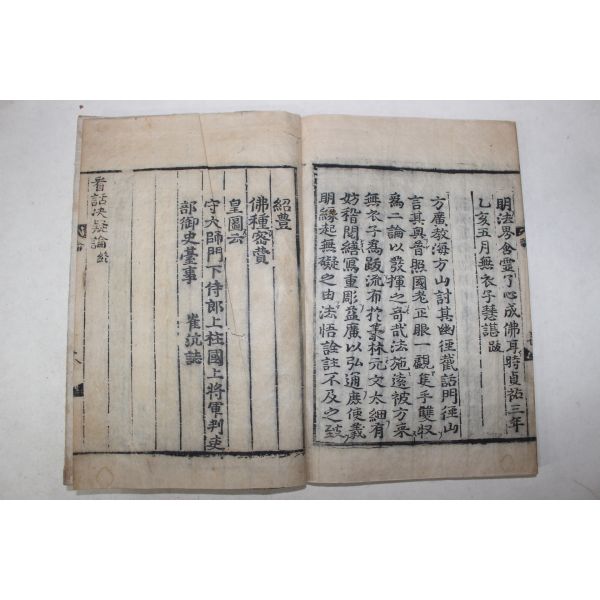 明法界含靈了心成佛耳時貞祐三年
乙亥五月無衣子慧諶跋
方廣教海方山討其幽徑截話門徑山
言其奥普照國老正眼一觀隻手雙収
爲二論以發揮之奇哉法施遠被方来
無衣子爲跋流布於叢林元文太細有
妨稽閱繕寫重彫益廣以弘通庶使義
明緣起無礙之由法悟詮註不及之旨
紹豊
佛種密賛
皇圖云
守大師門下侍郎上柱國上將軍判吏
部御史臺事 崔沆誌
看話决疑論終